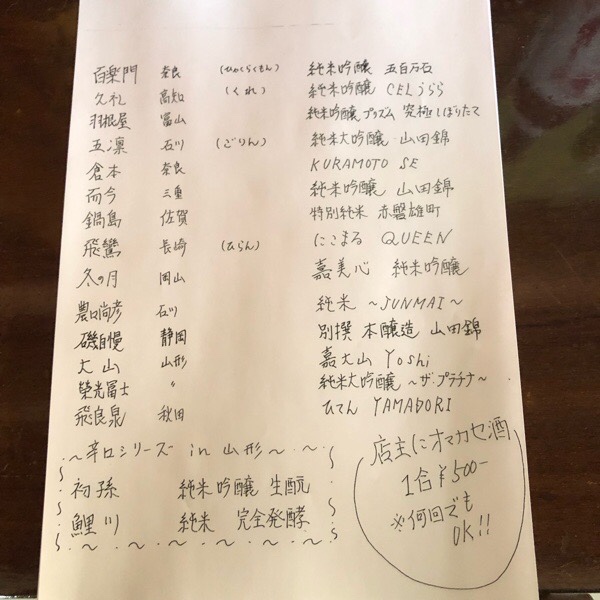 百楽門 奈良 (ひゃくらくもん) 純米吟醸 五百万石
久礼 高知 (くれ) 純米吟醸 CELうらら
羽根屋 富山 純米吟醸 プリズム 究極しぼりたて
五凛 石川 (ごりん) 純米大吟醸 山田錦
倉本 奈良 KURAMOTO SE
而今 三重 純米吟醸 山田錦
鍋島 佐賀 特別純米 赤磐雄町
飛鸞 長崎 (ひらん) にこまる QUEEN
冬の月 岡山 嘉美心 純米吟醸
農口尚彦 石川 純米 ~JUNMAI~
磯自慢 静岡 別撰 本醸造 山田錦
大山 山形 嘉大山 Yoshi
榮光冨士 〃 純米大吟醸 ~ザ・プラチナ~
飛良泉 秋田 ひてん YAMADORI
~辛口シリーズ in 山形~
初孫 純米吟醸 生酛
鯉川 純米 完全発酵
店主にオマカセ酒
1合 ¥500-
※何回でも
OK!!